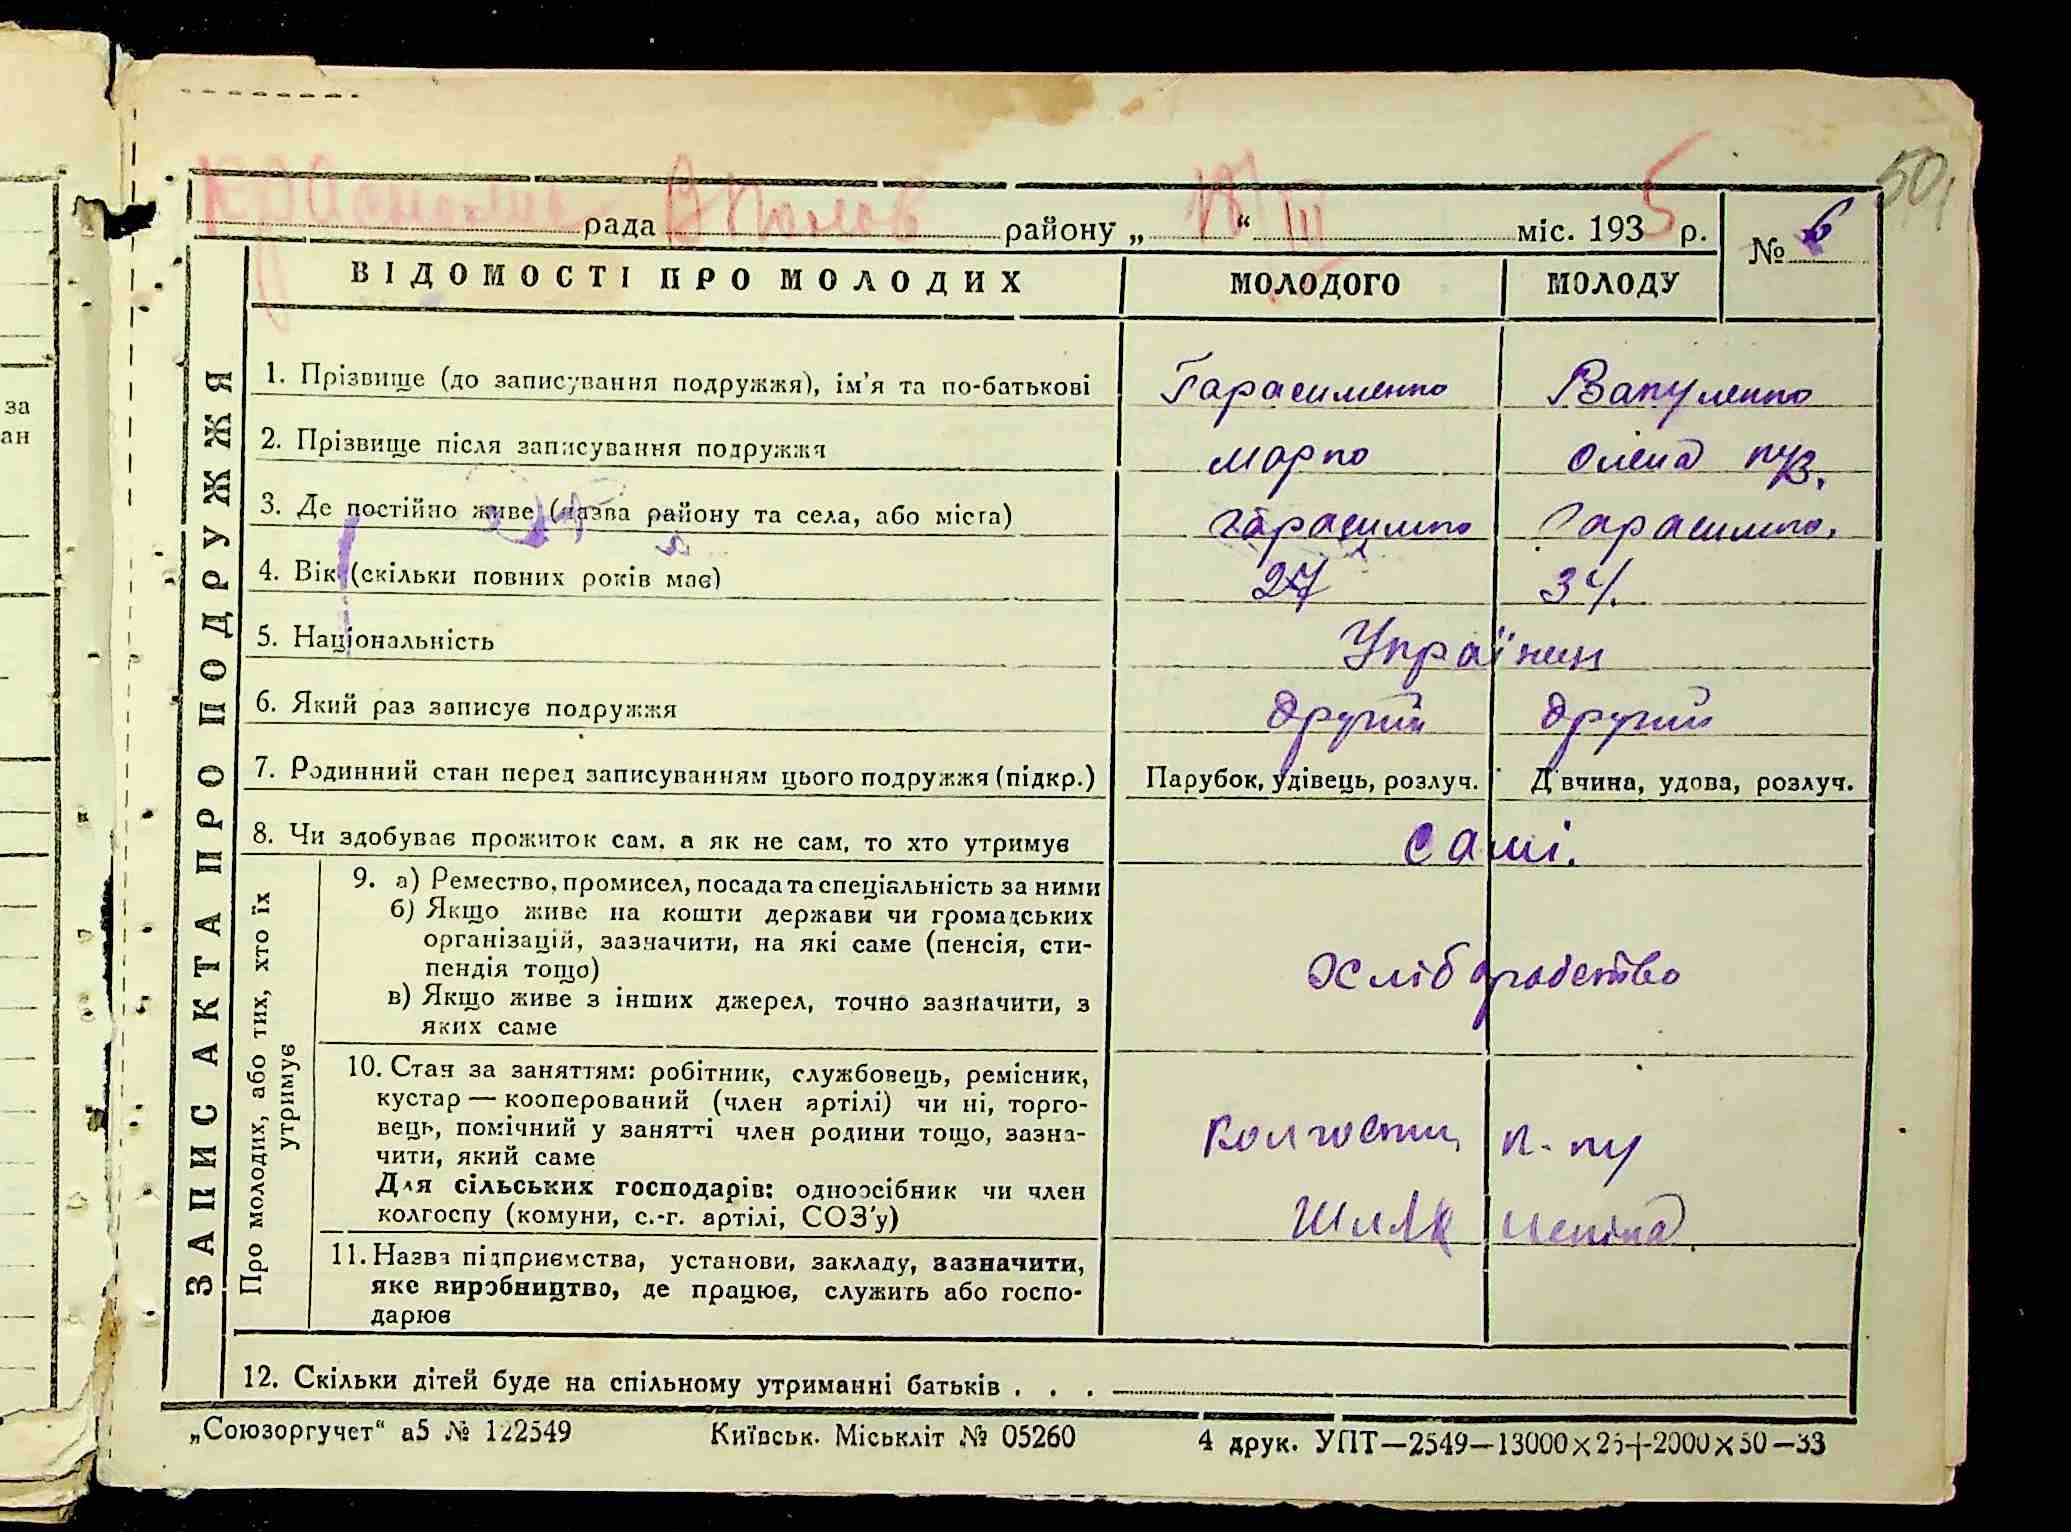 50
рада району „ “ III міс. 1935 р.
№ 6
ВІДОМОСТІ ПРО МОЛОДИХ МОЛОДОГО МОЛОДУ
ЗАПИС АКТА ПРО ПОДРУЖЖЯ
1. Прізвище (до записування подружжя), ім’я та по-батькові Гарасименко Вакуленко
2. Прізвище після записування подружжя Марко Олена
3. Де постійно живе (назва району та села, або міста)
4. Вік (скільки повних років має) 27 34.
5. Національність Українин
6. Який раз записує подружжя другий другий
7. Родинний стан перед записуванням цього подружжя (підкр.) Парубок, удівець, розлуч. Дівчина, удова, розлуч.
8. Чи здобуває прожиток сам, а як не сам, то хто утримує самі.
Про молодих, або тих, хто їх утримує
9. а) Ремество, промисел, посада та спеціальність за ними
б) Якщо живе на кошти держави чи громадських
організацій, зазначити, на які саме (пенсія, сти-
пендія тощо) Хліборобство
в) Якщо живе з інших джерел, точно зазначити, з
яких саме
10. Стан за заняттям: робітник, службовець, ремісник,
кустар — кооперований (член артілі) чи ні, торго-
вець, помічний у занятті член родини тощо, зазна-
чити, який саме
Для сільських господарів: одноосібник чи член
колгоспу (комуни, с.-г. артілі, СОЗ’у) Шлях Леніна
11. Назва підприємства, установи, закладу, зазначити,
яке виробництво, де працює, служить або госпо-
дарює
12. Скільки дітей буде на спільному утриманні батьків . . .
„Союзоргучет“ а5 № 122549 Київськ. Міськліт № 05260 4 друк. УПТ—2549—13000×25+2000×50—33
за
ан